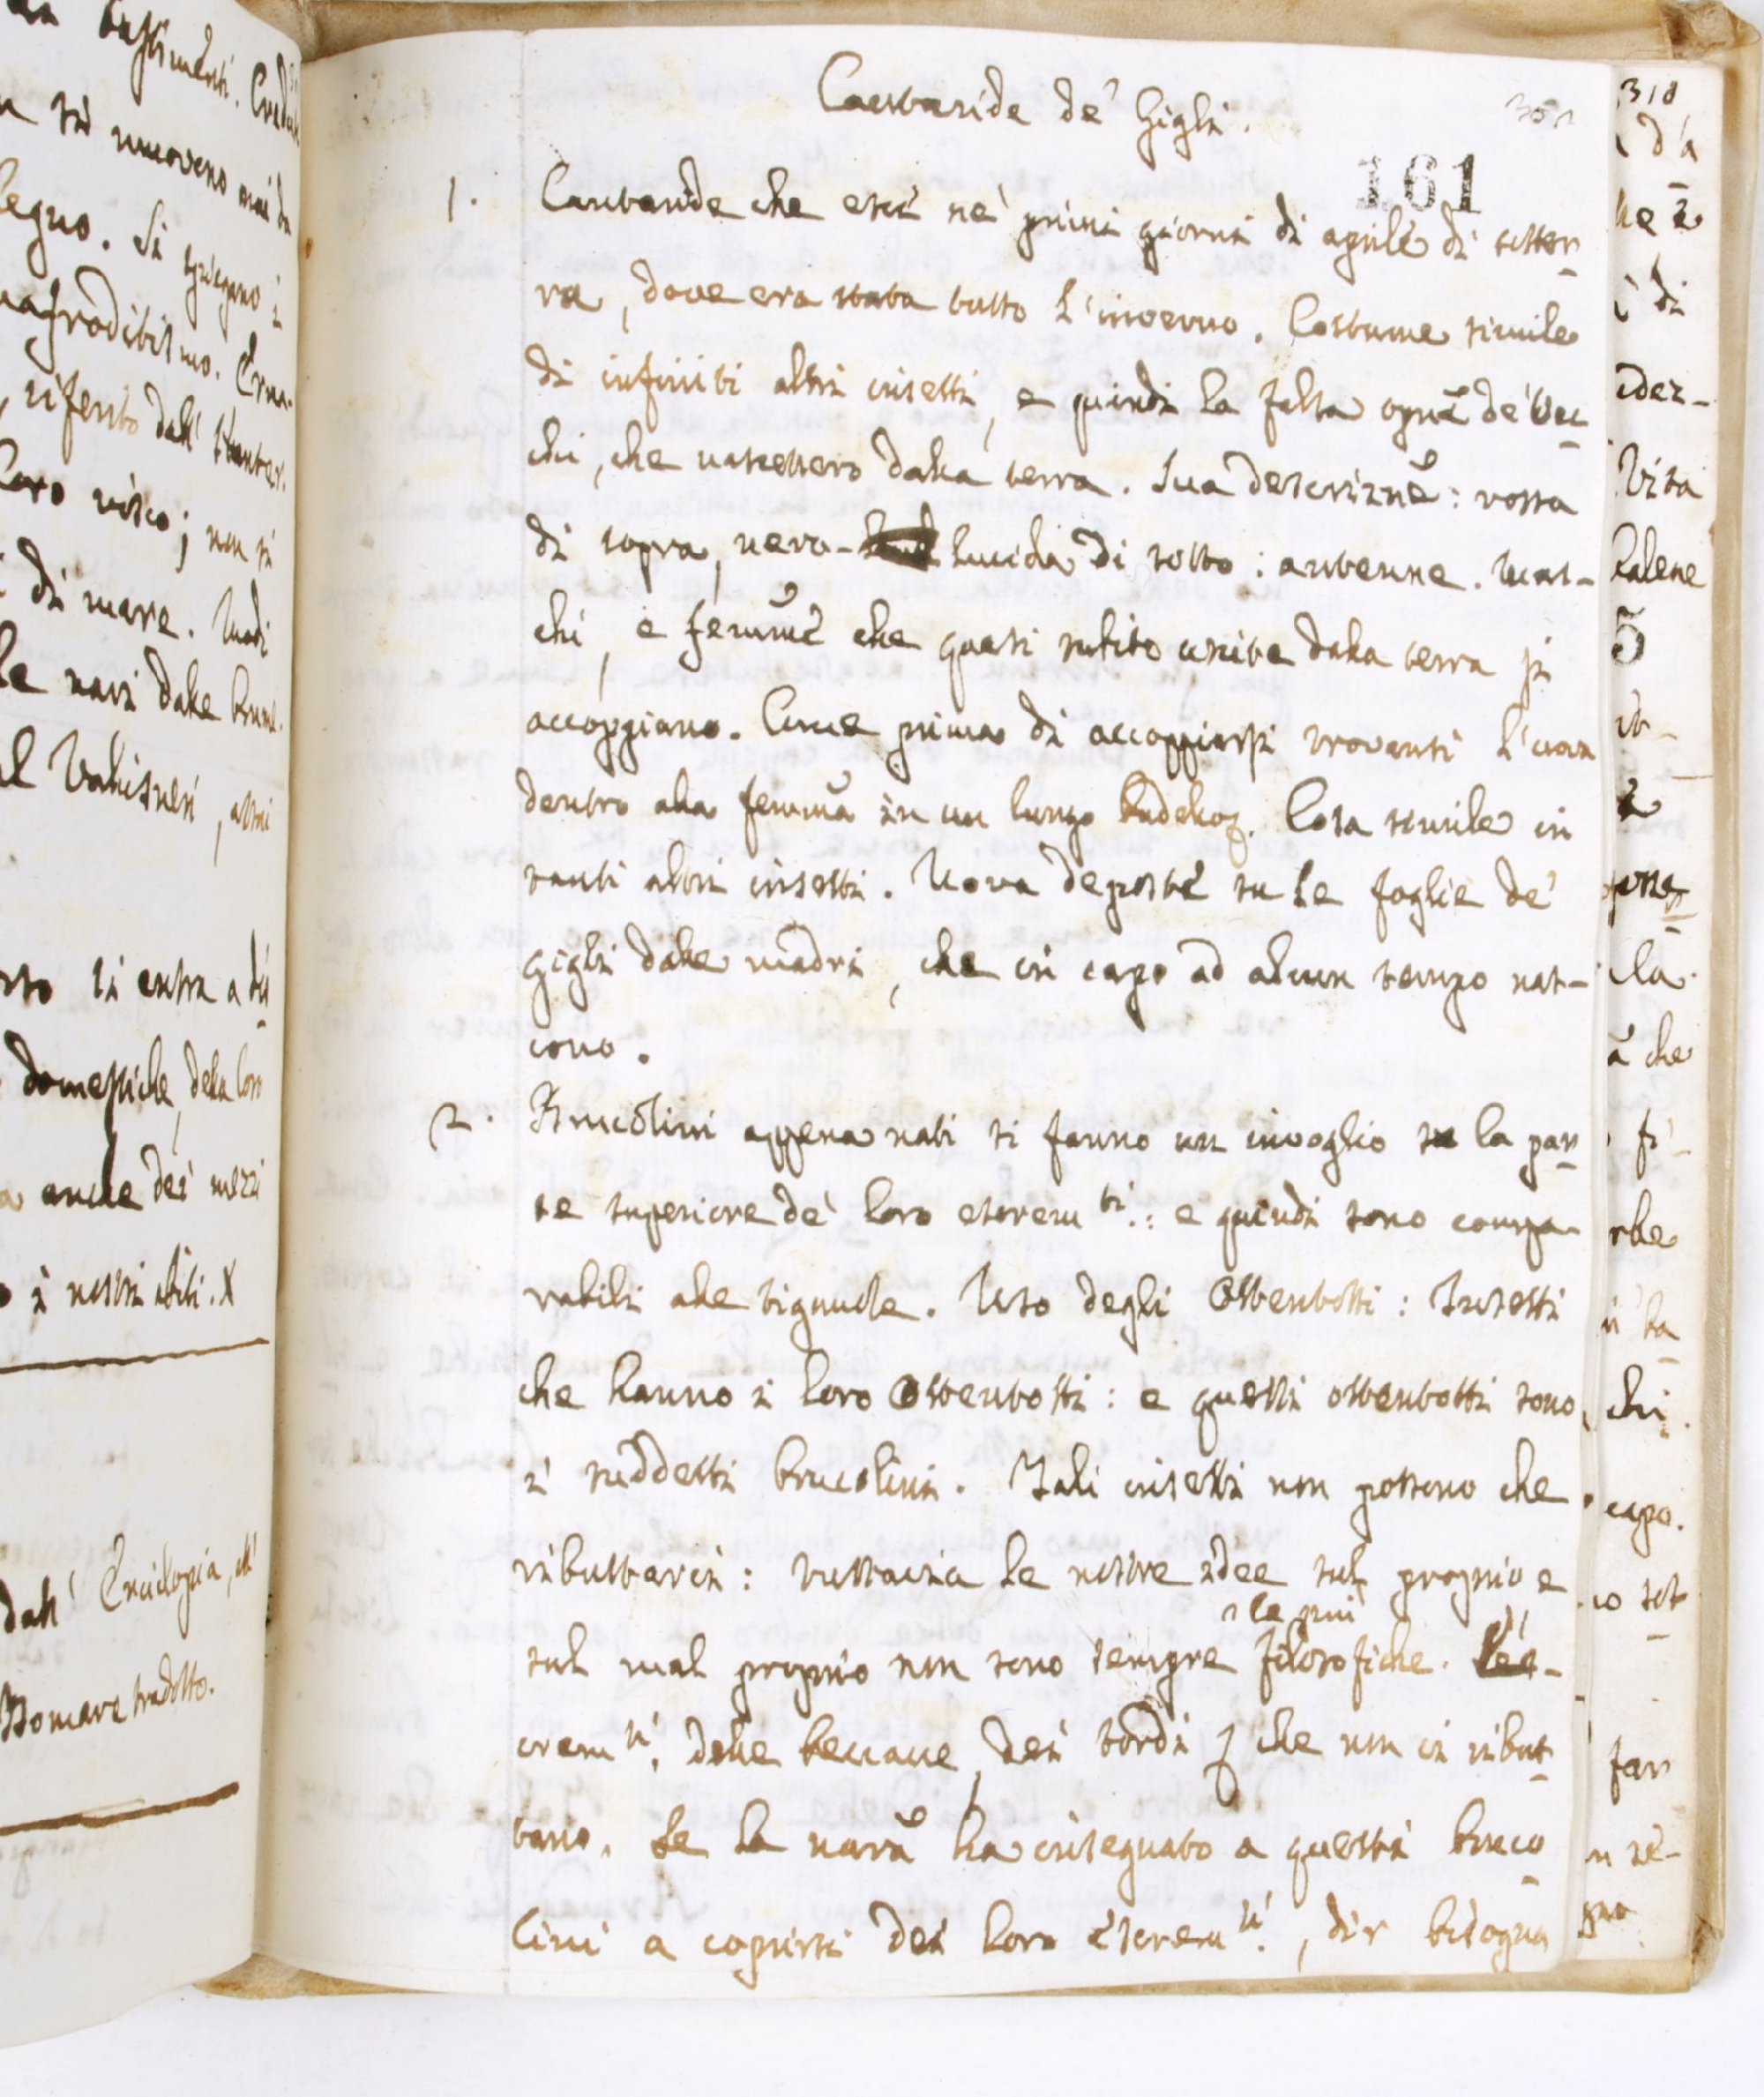 Cantaride de' Gigli.
301
161
1. Cantaride che esci ne' primi giorni di aprile di sotter
ra, dove era stata tutto l'inverno. Costume simile
di infiniti altri insetti, e quindi la falsa opinẽ de' Vec
chi, che nascessero dalla terra. Sua descriznẽ: rossa
di sopra, nero- lucida di sotto: antenne. Mas-
chi, e femmẽ che quasi subito uscite dalla terra si
accoppiano. Come prima di accoppiarsi trovansi l'uova
dentro alla femmã in un lungo budello. Cosa simile in
tanti altri insetti. Uova deposte su le foglie de'
gigli dalle madri, che in capo ad alcun tempo nas-
cono.
2. Brucolini appena nati si fanno un invoglio su la par
te superiore de' loro escrem.ti: e quindi sono compa
rabili alle tignuole. Uso degli Ottentotti: Insetti
che hanno i loro Ottentotti: e questi ottentotti sono
i suddetti brucolini. Tali insetti non possono che
ributtarci: tuttavia le nostre idee sul proprio e
sul mal proprio non sono sempre le più filosofiche. L'es-
crem.ti delle beccacce, dei tordi che non ci ribut
tano. Se la narã ha insegnato a questi bruco
lini a coprirsi dei loro escrem.ti, dir bisogna
bastimenti. Credu
si muoveno mai da
legno. Si spiegano i
nafroditismo. Erma-
, riferito dall'
loro visco; non si
di mare. Modi
le navi dalle brume.
al Valisneri, altri
si entra a di
domestiche, della loro
anche dei mezzi
i nostri abiti. X
dall' Enciclopia,
Bomare tradotto.
310
d'a
he è
di
idez-
Vita
balene
5
la
a che
fi-
rbe
chi.
capo.
io sot
far